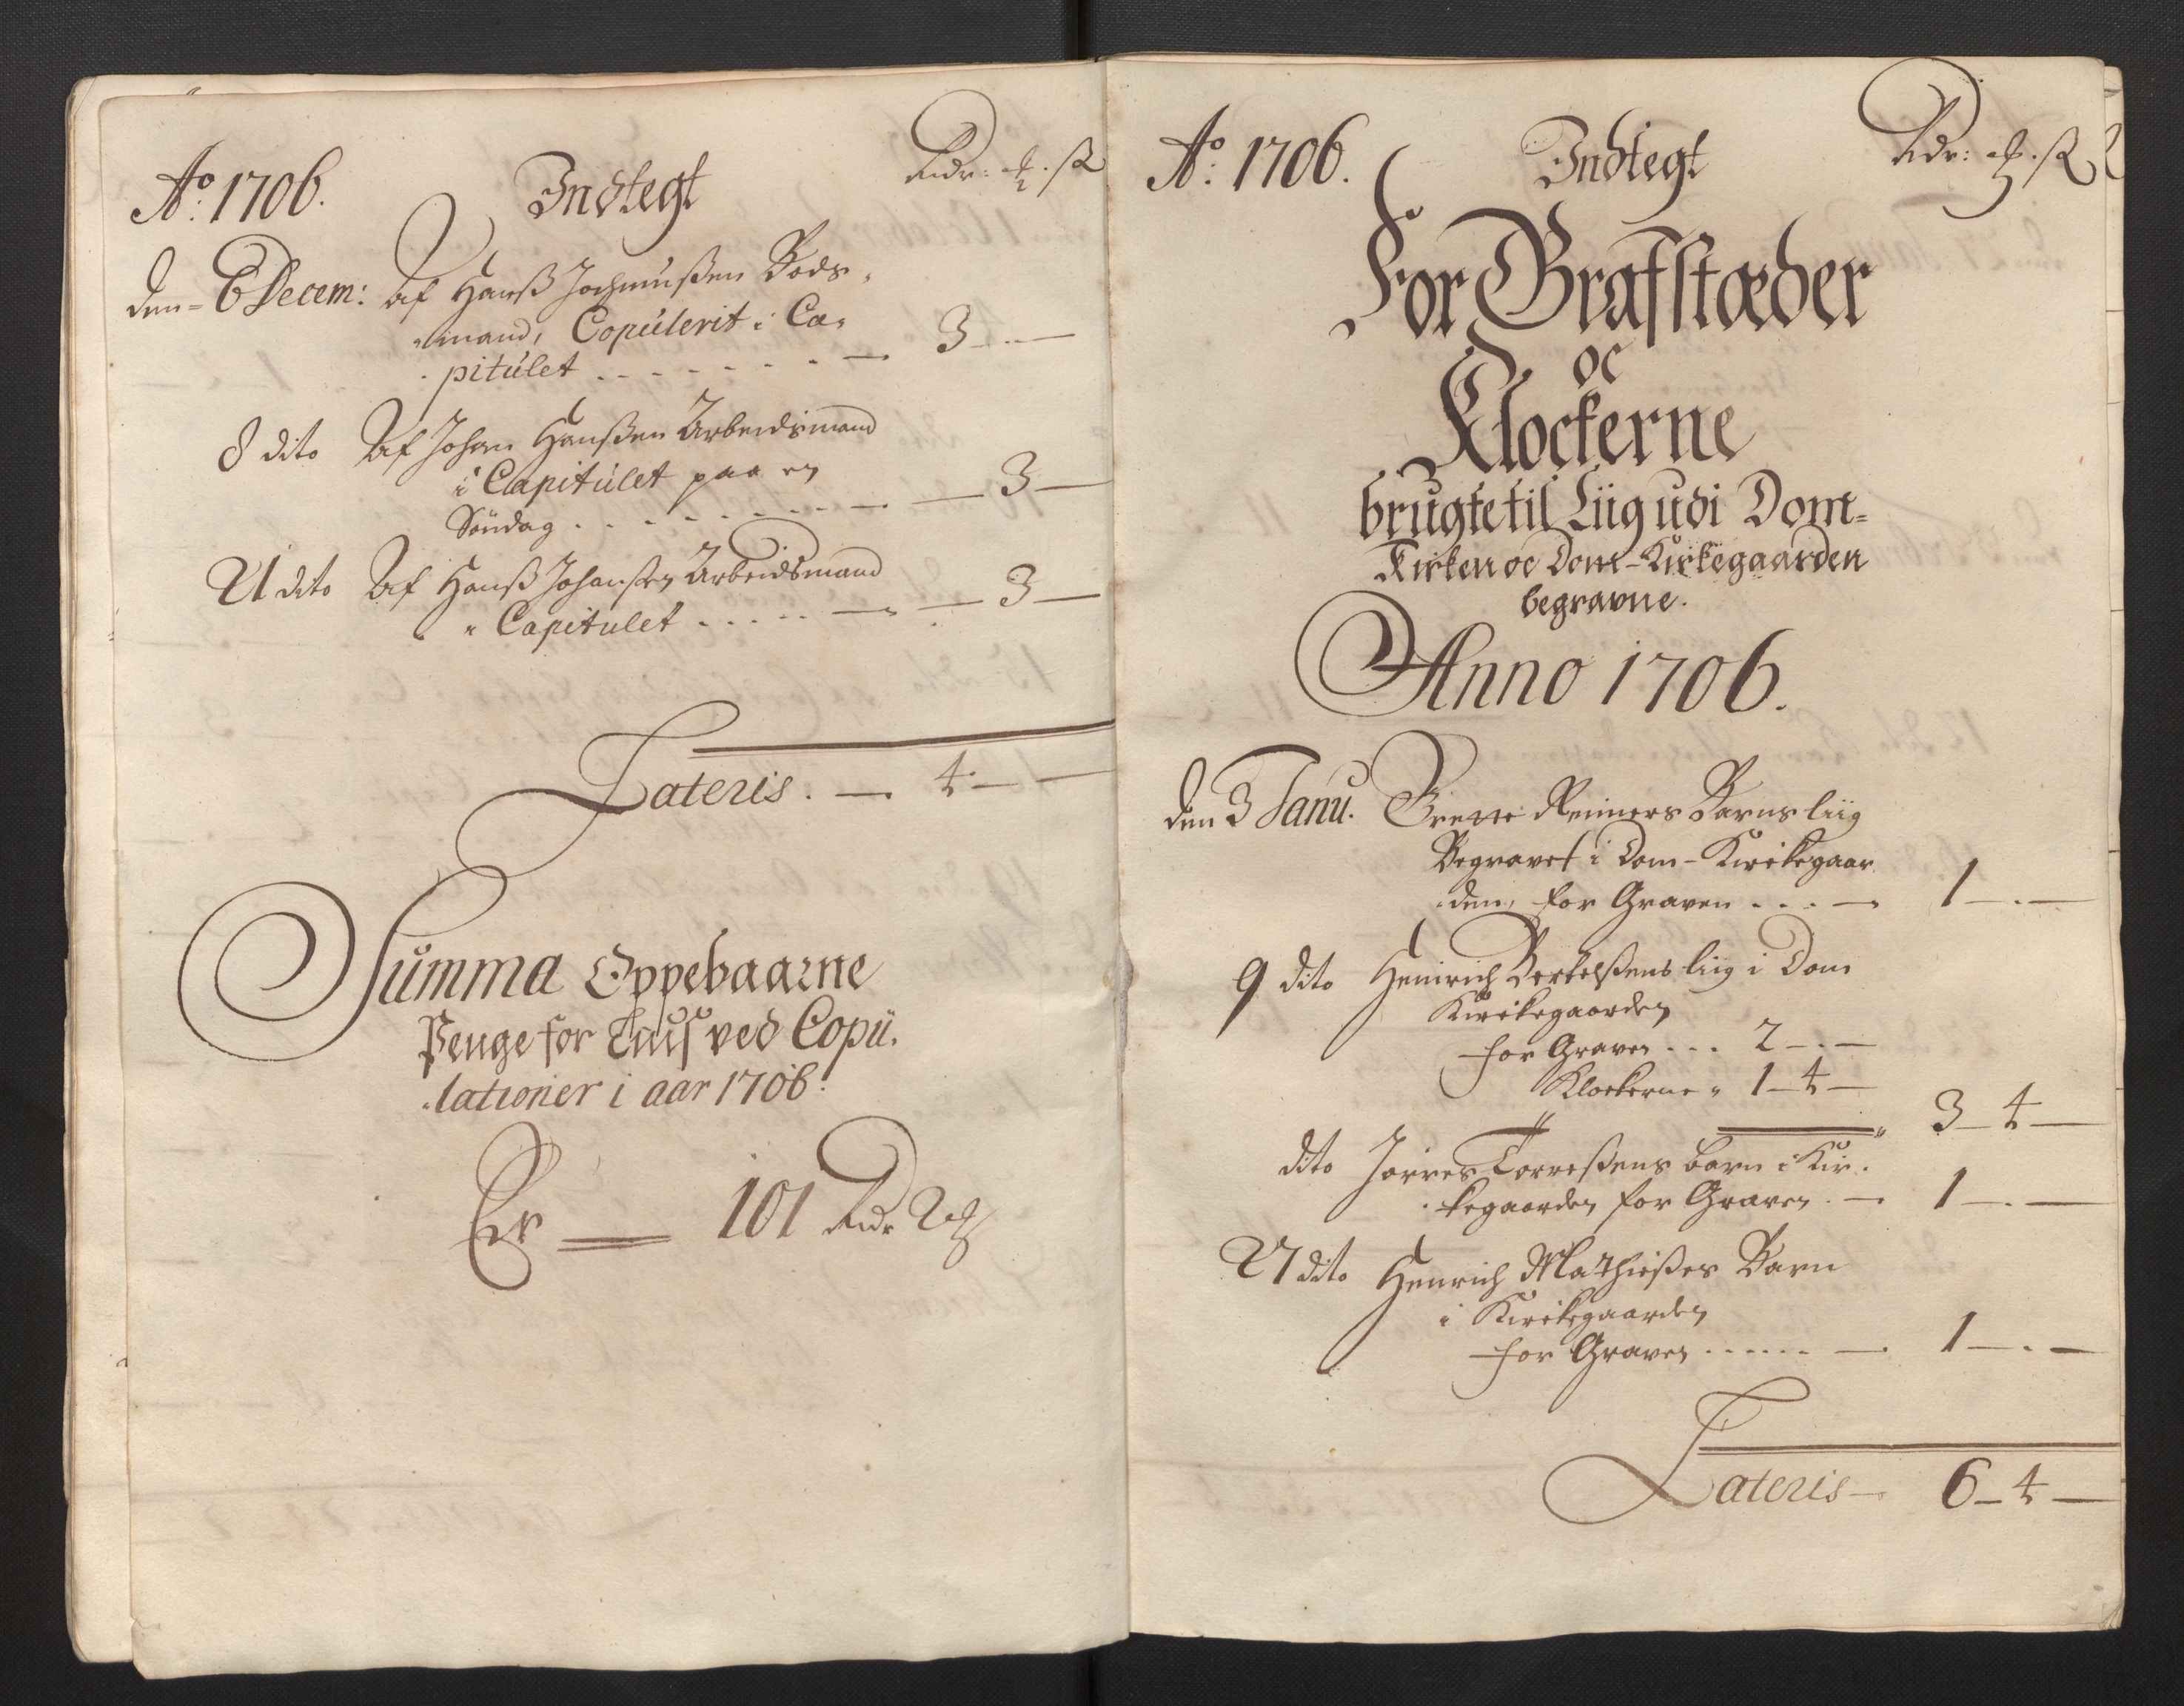 Aº: 1706.
Indtegt
Rdr: ß
den 6 Decem: Af Hanß Jochumßen Bods,
mand, Copúlerit i Ca,
pitúlet . . . . . . . — 3 — . —
8 dito Af Johan Hanßen Arbeidsmand
i Capitúlet paa en
Söndag . . . . . . . . — — 3 —
21 dito Af Hanß Johanßen Arbeidsmand
Capitulet . . . . . — — 3 —
Lateris. — 4 — —
Summa Oppebaarne
Penge for Liuß ved Copú.
lationer i aar 1706.
Er — 101 Rdr 2
Aº: 1706.
Indtegt
Rdr: ß
For Grafstæder
oc
Klockerne
brugte til Liig udi Dom=
Kirken oc Dom-Kirkegaarden
begravne.
Anno 1706.
den 3 Janu. Reiners Barns liig
Begravet i Dom-Kirkegaar
den, for Graven . . . — 1 — . —
9 dito Heinrich liig i Dom
Kirckegaarden
for Graven . . . 2 — . —
Klockerne " 1 — 4 —
3 — 4 —
dito Torreßens barn i Kir.
kegaarden for Graven . — 1 — . —
27 dito Henrich Mathießes Barn
i Kirckegaarden
for Graven . . . . . . — 1 — . —
Lateris — 6 — 4 —